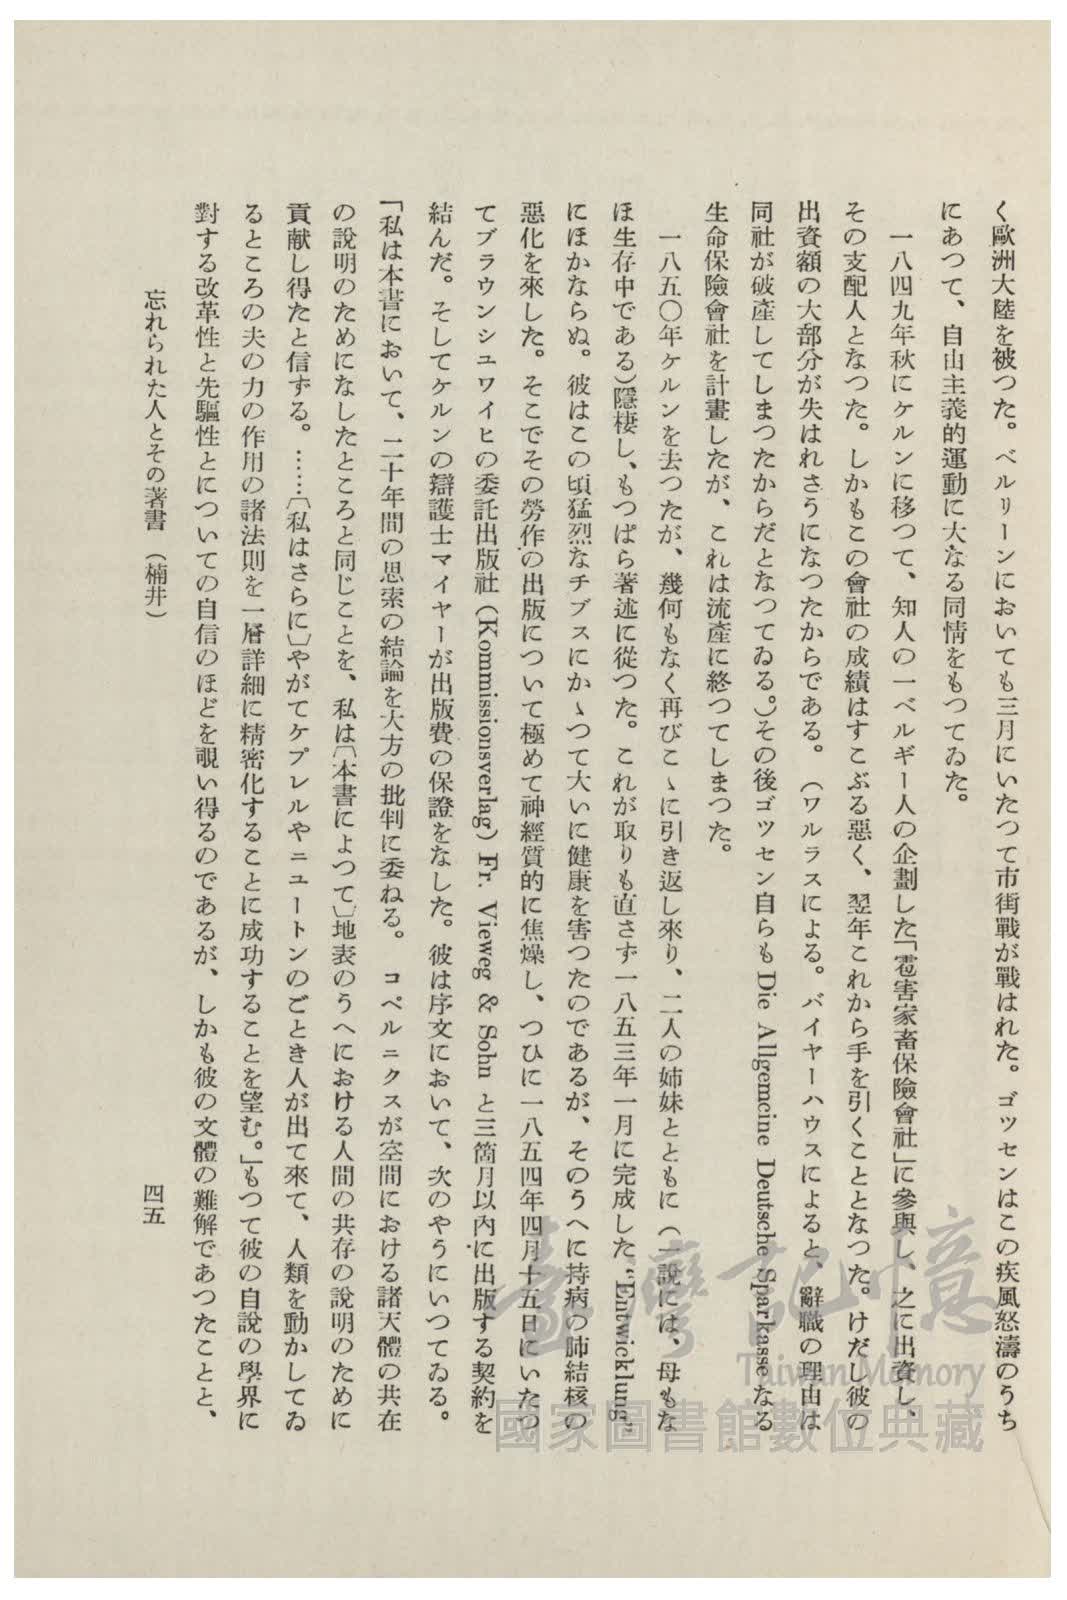 く歐洲大陸を被つた。ベルリーンにおいても三月にいたつて市街戰が戰はれた。ゴツセンはこの疾風怒濤のうち
にあつて、自由主義的運動に大なる同情をもつてゐた。
一八四九年秋にケルンに移つて、知人の一ベルギー人の企劃した「雹害家畜保險會社」に參與し、之に出資し、
その支配人となつた。しかもこの會社の成績はすこぶる惡く、翌年これから手を引くこととなつた。けだし彼の
出資額の大部分が失はれさうになつたからである。（ワルラスによる。バイヤーハウスによると、辭職の理由は
同社が破產してしまつたからだとなつてゐる。）その後ゴツセン自らも Die Allgemeine Deutsche Sparkasse なる
生命保險會社を計畫したが、これは流產に終つてしまつた。
一八五〇年ケルンを去つたが、幾何もなく再びこゝに引き返し來り、二人の姉妹とともに（一說には、母もな
ほ生存中である）隱棲し、もつぱら著述に從つた。これが取りも直さず一八五三年一月に完成した “Entwicklung”
にほかならぬ。彼はこの頃猛烈なチブスにかゝつて大いに健康を害つたのであるが、そのうへに持病の肺結核の
惡化を來した。そこでその勞作の出版について極めて神經質的に焦燥し、つひに一八五四年四月十五日にいたつ
てブラウンシユワイヒの委託出版社（Kommissionsverlag）Fr. Vieweg & Sohn と三箇月以內に出版する契約を
結んだ。そしてケルンの辯護士マイヤーが出版費の保證をなした。彼は序文において、次のやうにいつてゐる。
「私は本書において、二十年間の思索の結論を大方の批判に委ねる。 コペルニクスが空間における諸天體の共在
の說明のためになしたところと同じことを、私は〔本書によつて〕地表のうへにおける人間の共存の說明のために
貢献し得たと信ずる。……〔私はさらに〕やがてケプレルやニュートンのごとき人が出て來て、人類を動かしてゐ
るところの夫の力の作用の諸法則を一層詳細に精密化することに成功することを望む。」もつて彼の自說の學界に
對する改革性と先驅性とについての自信のほどを覗い得るのであるが、しかも彼の文體の難解であつたことと、
忘れられた人とその著書（楠井）
四五
臺灣記憶
Taiwan Memory
國家圖書館數位典藏